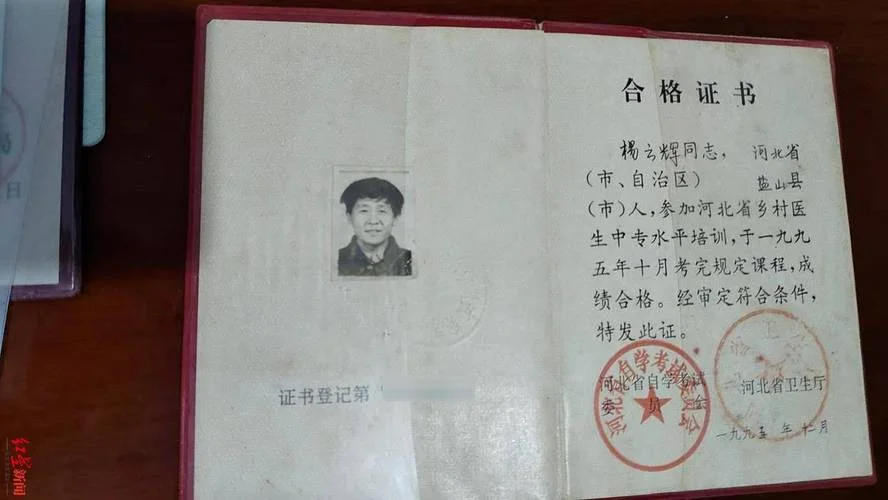 证书登记第
合格证书
楊云辉同志，河北省
（市、自治区）盐山县
（市）人，参加河北省乡村医
生中专水平培训，于一九九
五年十月考完规定课程，成
绩合格。经审定符合条件，
特发此证。
河北省自学考试
委员会
河北省卫生厅
一九九五年十二月
红星新闻